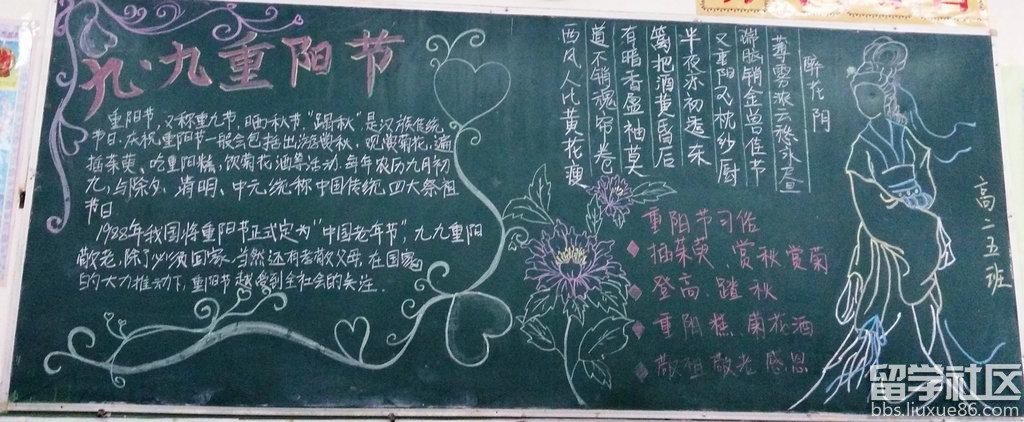 九·九重阳节
重阳节,又称重九节,晒秋节"踏秋",是汉族传统
节日.庆祝重阳节一般会包括出游赏秋、观赏菊花、遍
插茱萸、吃重阳糕、饮菊花酒等活动.每年农历九月初
九,与除夕、清明、中元统称中国传统四大祭祖
节日
1988年我国将重阳节正式定为"中国老年节",九九重阳
敬老,除了必须回家.当然还有孝敬父母.在国家
的大力推动下,重阳节越受到全社会的关注.
醉花阴
薄雾浓云愁永昼
瑞脑销金兽佳节
又重阳玉枕纱厨
半夜凉初透东
篱把酒黄昏后
有暗香盈袖莫
道不销魂帘卷
西风人比黄花瘦
重阳节习俗
插茱萸、赏秋赏菊
登高、踏秋
重阳糕、菊花酒
敬祖敬老感恩
高二五班
留学社区
bbs.liuxue86.com